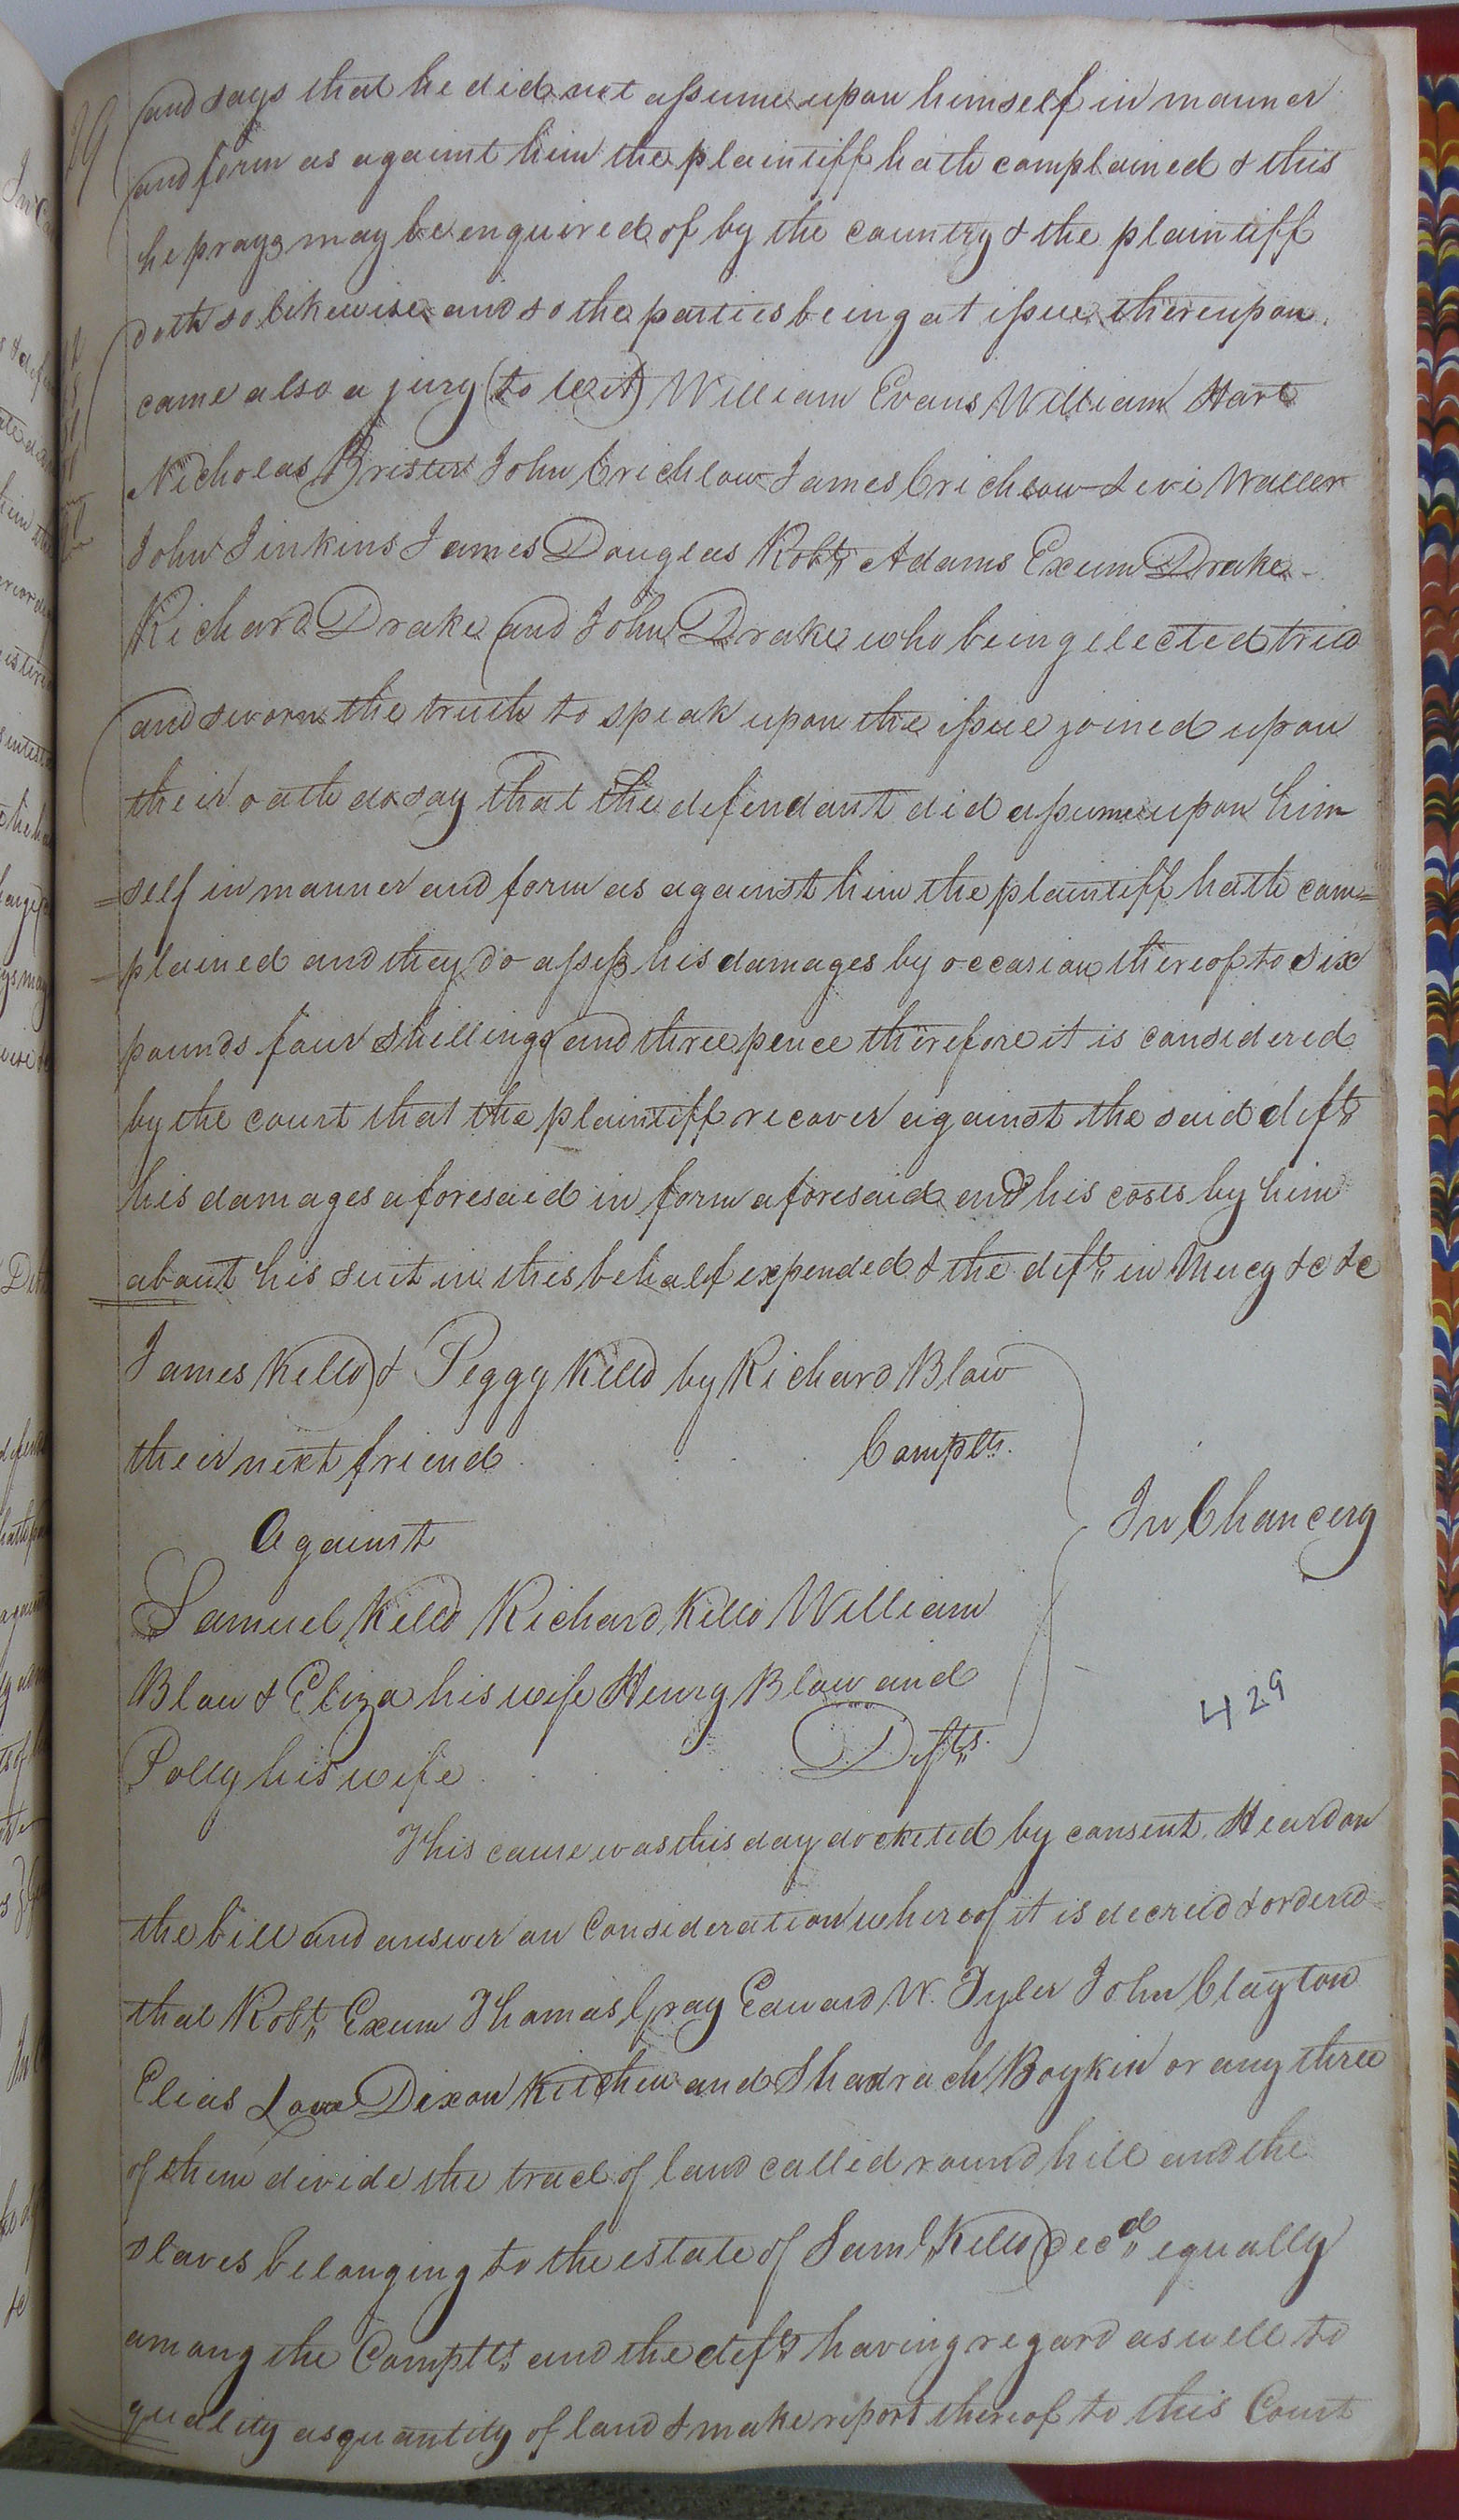 and says that he did not assume upon himself in manner
and form as against him the plaintiff hath complained & this
he prays may be enquired of by the country & the plaintiff
doth so likewise and so the parties being at issue thereupon
came also a jury (to wit) William Evans William Hart
Nicholas Brister John Crichlow James Crichlow Levi Waller
John Jinkins James Douglas Robt, Adams Exum Drake
Richard Drake and John Drake who being elected tried
and sworn the truth to speak upon the issue joined upon
their oath do say That the defendant did assume upon him
=self in manner and form as against him the plaintiff hath com=
=plained and they do assess his damages by occasion thereof to six
pounds four shillings and three pence therefore it is considered
by the court that the plaintiff recover against the said deft,
his damages aforesaid in form aforesaid and his costs by him
about his suit in this behalf expended & the deft, in Mercy &c &c
James Kello & Peggy Kello by Richard Blow
their next friend . . . . Complts.
Against
In Chancery
Samuel Kello Richard Kello William
Blow & Eliza his wife Henry Blow and
429
Polly his wife . . . . Defts.
This cause was this day docketed by consent. Heard on
the bill and answer on Consideration whereof it is decreed & ordered
that Robt, Exum Thomas Gray Edward W. Tyler John Clayton
Elias Love Dixon Kitchen and Shadrach Boykin or any three
of them divide the tract of land called round hill and the
slaves belonging to the estate of Saml, Kello decd, equally
among the Complts and the defts having regard as well to
quality as quantity of land & make report thereof to this Court